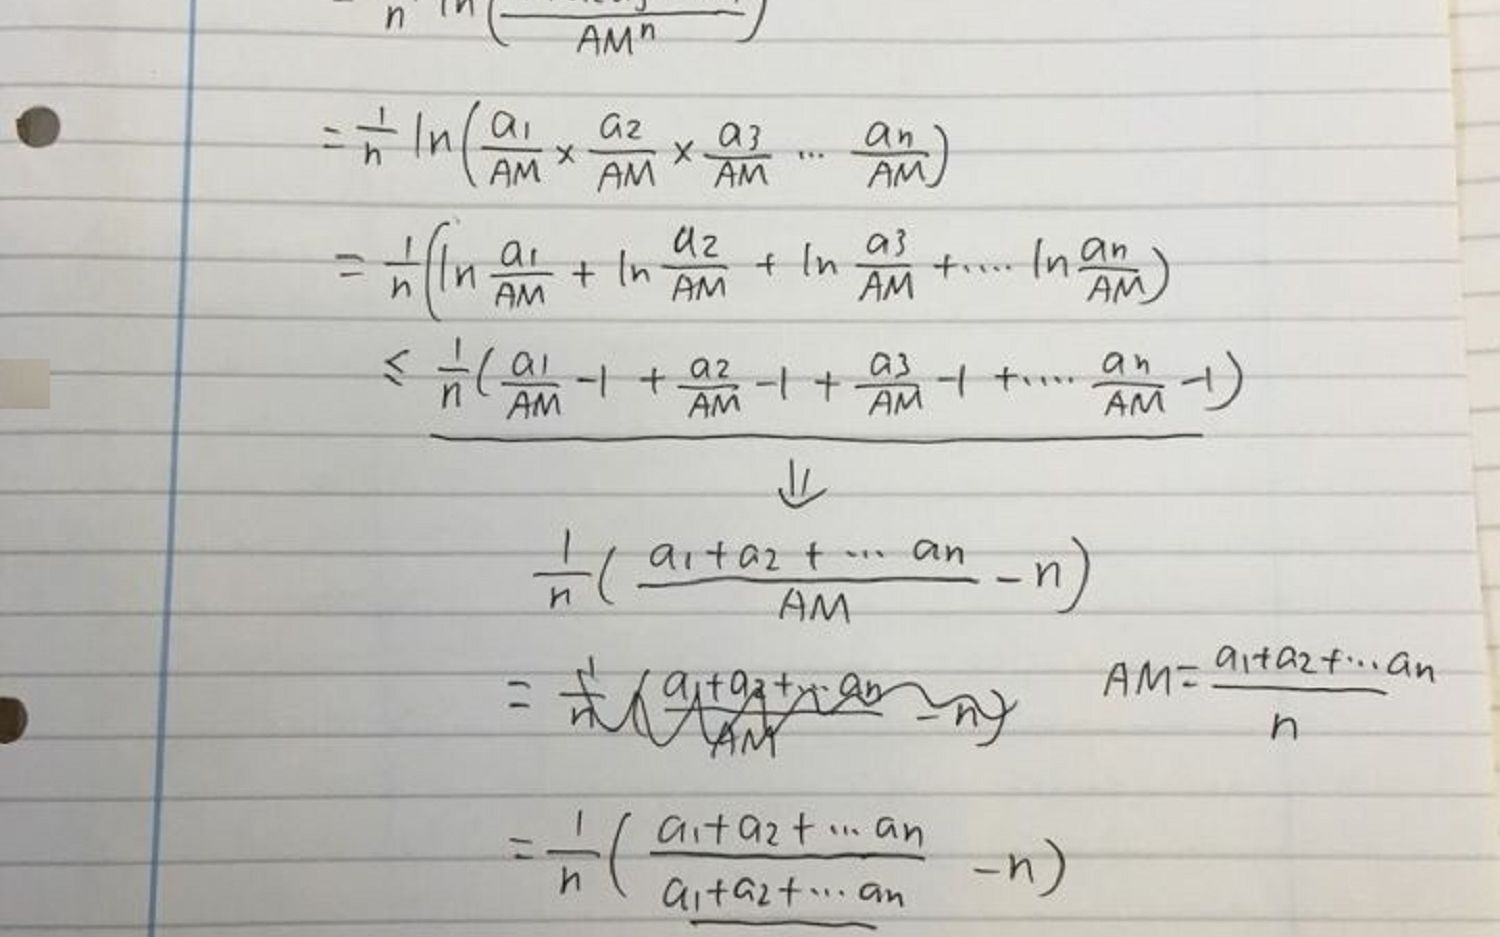 1/n ln( / AM^n)
= 1/n ln(a1/AM × a2/AM × a3/AM ... an/AM)
= 1/n (ln a1/AM + ln a2/AM + ln a3/AM + .... ln an/AM)
≤ 1/n (a1/AM -1 + a2/AM -1 + a3/AM -1 + .... an/AM -1)
⇓
1/n ( (a1+a2+ ... an)/AM - n)
= 1/n ( (a1+a2+... an)/AM - n)
AM = (a1+a2+... an)/n
= 1/n ( (a1+a2+ ... an)/(a1+a2+... an) -n)